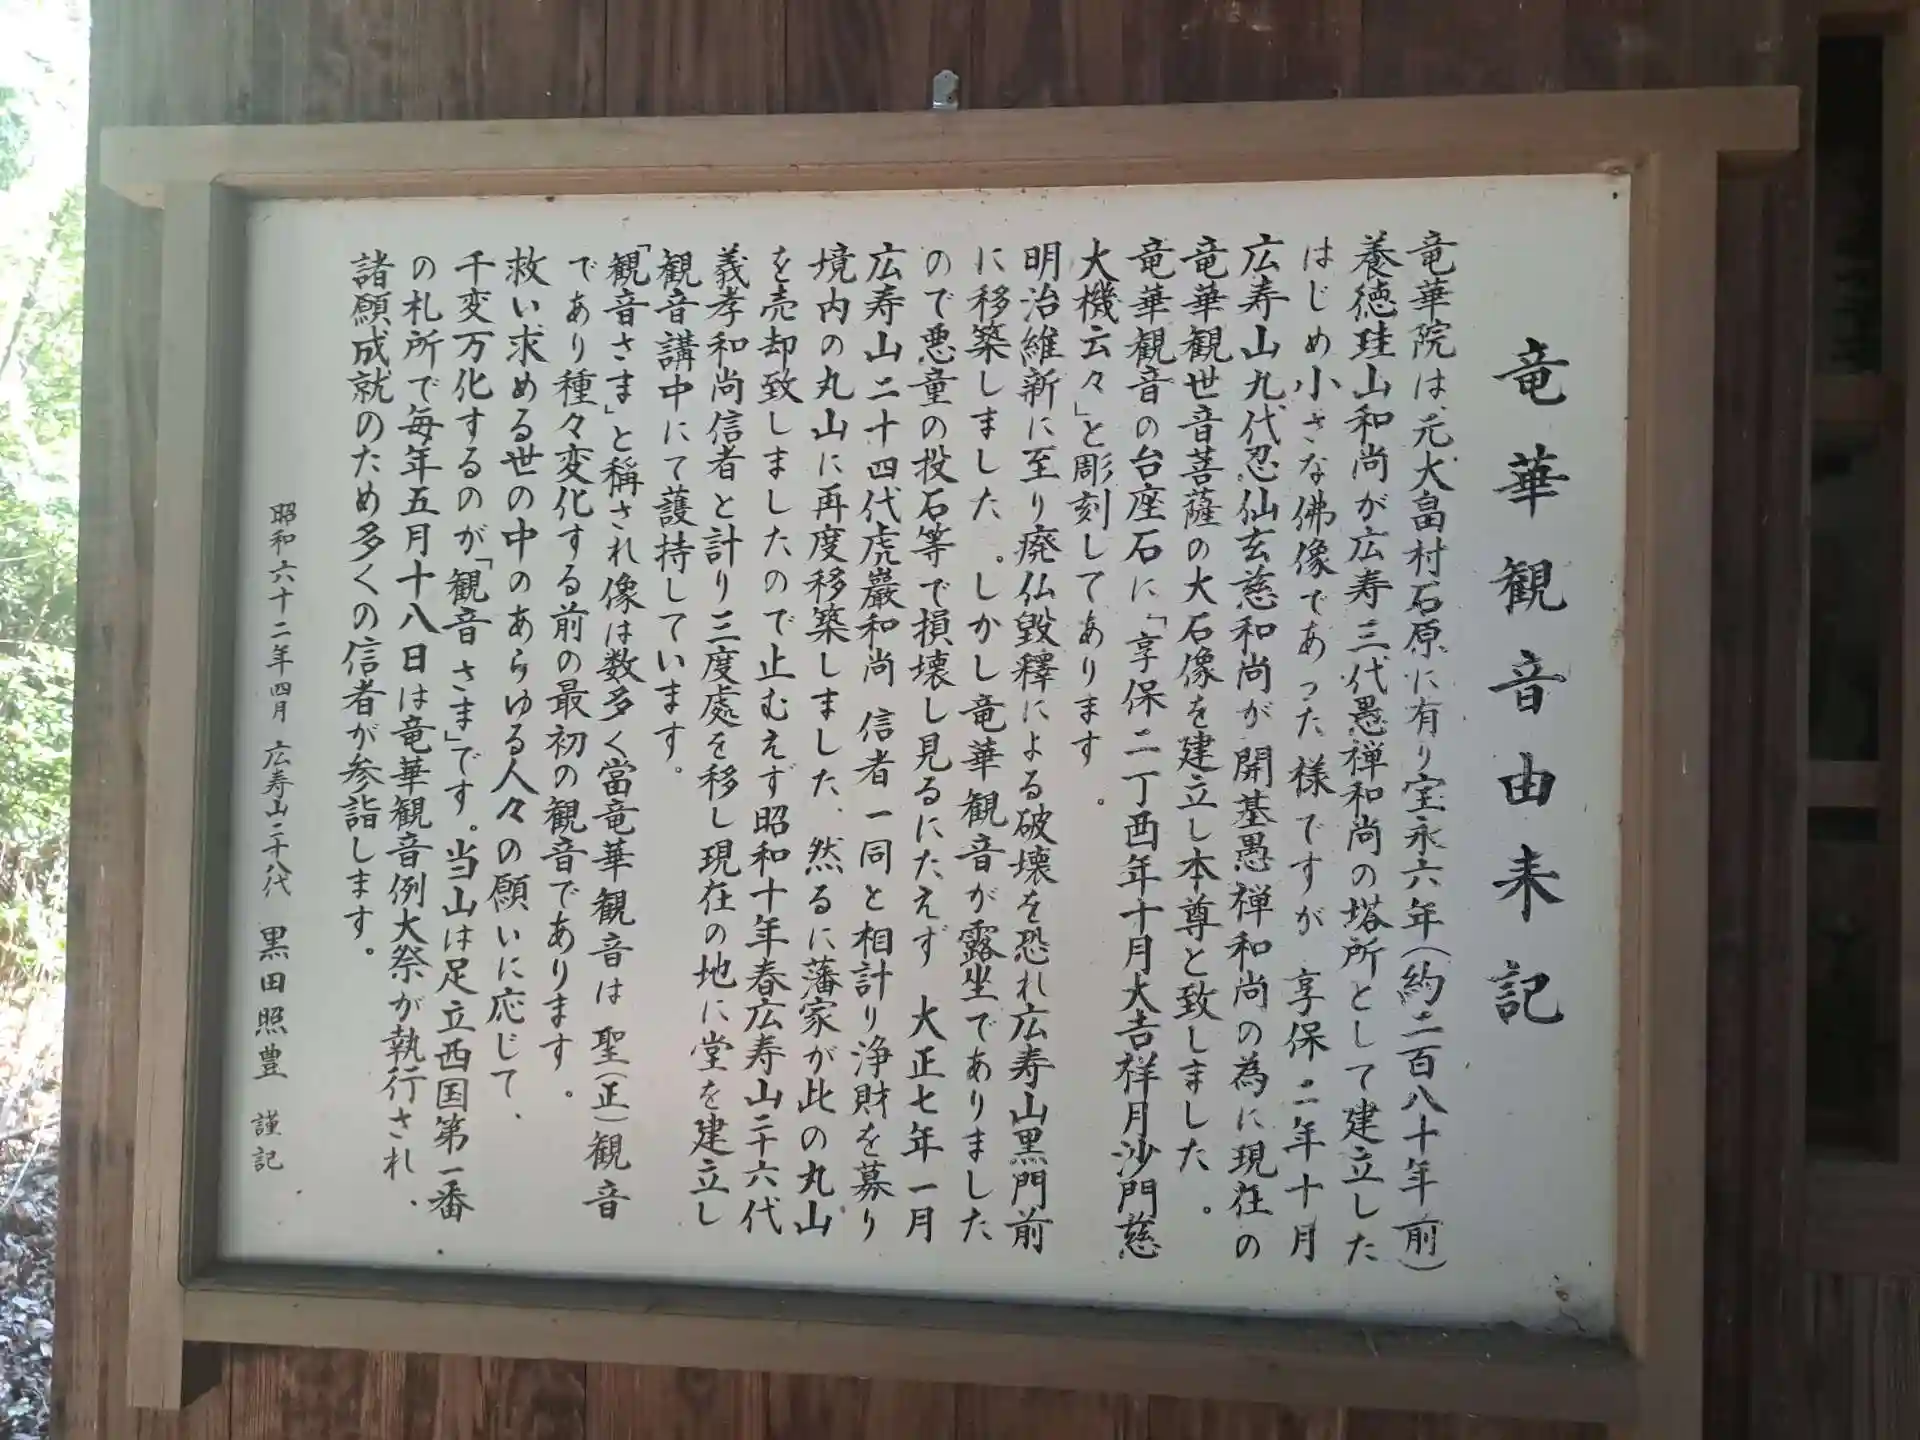 竜華観音由来記
竜華院は元大畠村石原に有り宝永六年(約二百八十年前)
養徳珪山和尚が広寿三代愚禅和尚の塔所として建立した
はじめ小さな佛像であった様ですが 享保二年十月
広寿山九代忍仙玄慈和尚が開基愚禅和尚の為に現在の
竜華観世音菩薩の大石像を建立し本尊と致しました。
竜華観音の台座石に「享保二丁酉年十月大吉祥月沙門慈
大機云々」と彫刻してあります。
明治維新に至り廃仏毀釋による破壊を恐れ広寿山黒門前
に移築しました。しかし竜華観音が露坐でありました
ので悪童の投石等で損壊し見るにたえず 大正七年一月
広寿山二十四代虎巖和尚 信者一同と相計り浄財を募り
境内の丸山に再度移築しました、然るに藩家が此の丸山
を売却致しましたので止むえず昭和十年春広寿山二十六代
義孝和尚信者と計り三度處を移し現在の地に堂を建立し
観音講中にて護持しています。
「観音さま」と稱され像は数多く當竜華観音は聖(正)観音
であり種々変化する前の最初の観音であります。
救い求める世の中のあらゆる人々の願いに応じて、
千変万化するのが「観音さま」です。当山は足立西国第一番
の札所で毎年五月十八日は竜華観音例大祭が執行され、
諸願成就のため多くの信者が参詣します。
昭和六十二年四月 広寿山二十八代 黒田照豊 謹記